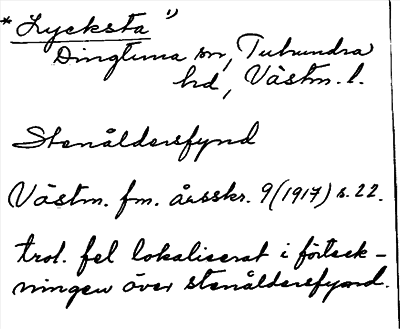 * Lycksta "
Dingtuna sn, Tuhundra
hd, Västm. l.
Stenåldersfynd
Västm. fm. årsskr. 9 (1917) s. 22.
trol. fel lokaliserat i förteck-
ningen över stenåldersfynd.